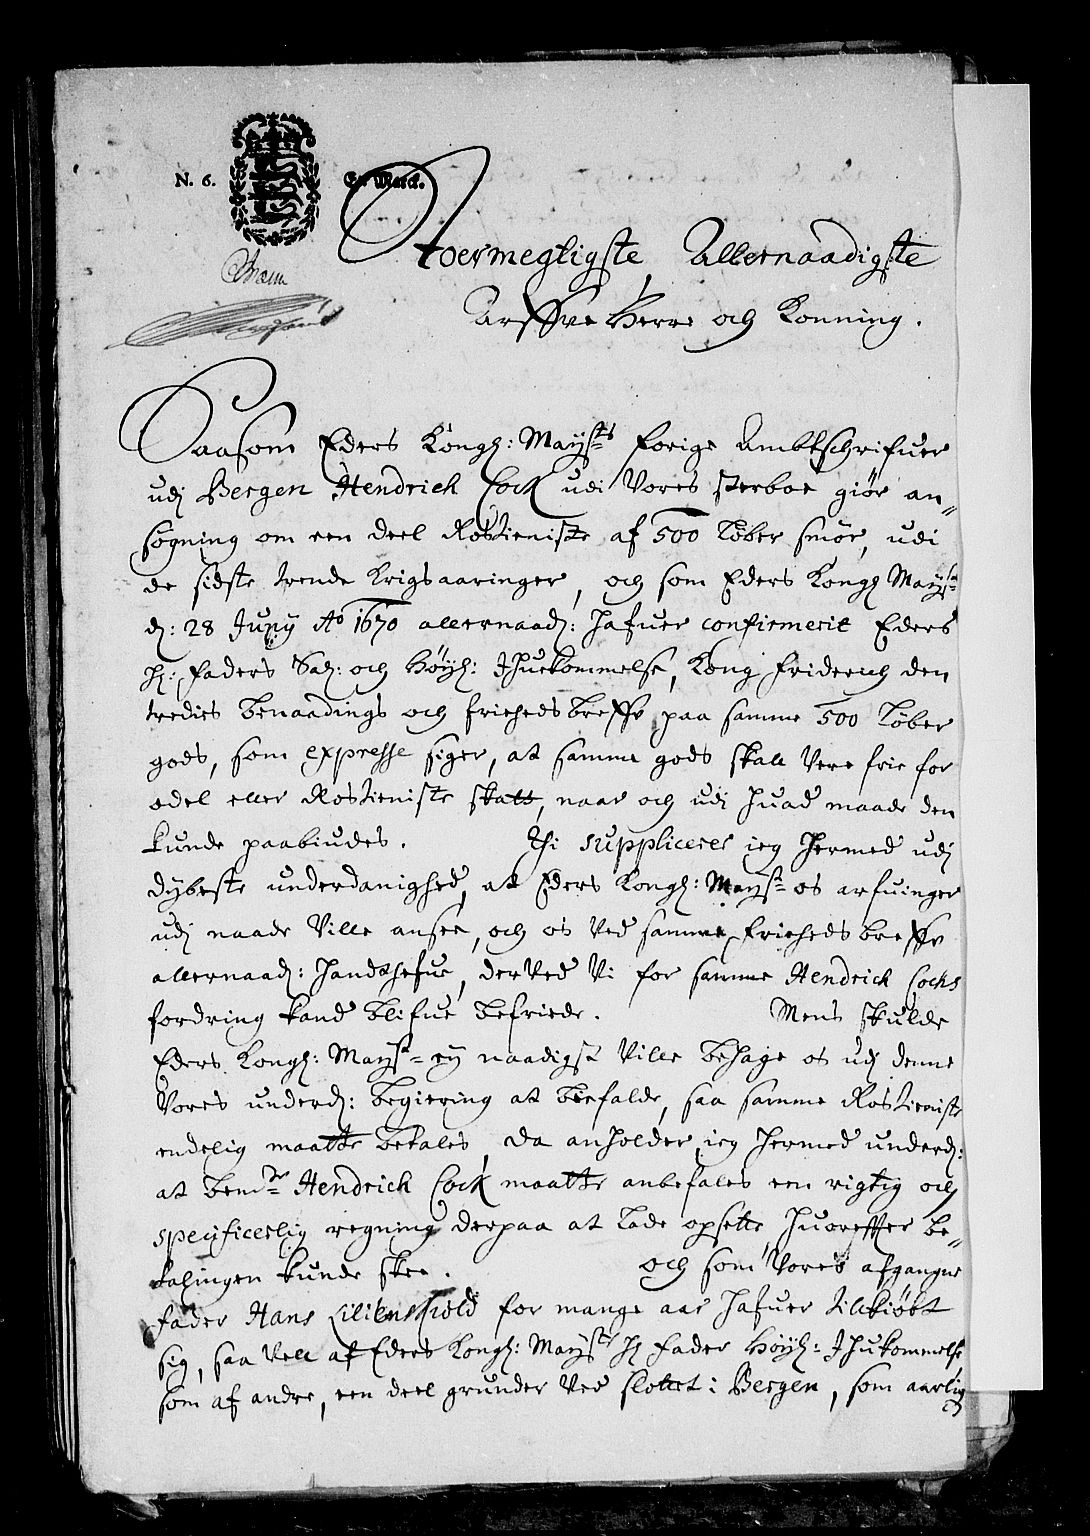 N. 6. En Marck.
Stoermegtigste Allernaadigste
Arffve Herre och Konning.
Saasom Eders Kongl: Mayts forige Ambtschrifuer
udj Bergen Hendrich Cock udi Vores sterboe giør an-
søgning om een deel Rostieniste af 500 Løber smør, udi
de sidste trende Krigsaaringer, och som Eders Kongl Mayst
d: 28 Junij Ao 1670 allernaad: hafuer confirmerit Eders
H: Faders Sal: och Høyl: Ihuekommelse, Kong Friderich den
tredies benaadings och friehedsbreff paa samme 500 Løber
gods, som expresse siger, at samme gods skall Vere frie for
odel eller Rostieniste skatt, naar och udj huad maade den
kunde paabiudes. Thi suppliceres ieg hermed udj
dybeste underdanighed, at Eders Kongl: Mayst os arfuinger
udj naade Ville ansee, och os Ved samme friehedsbreff
allernaad: handthefue, derved Vi for samme Hendrich Cocks
fordring kand blifue befriede. Mens skulde
Eders Kongl: Mayst ey naadigst Ville behage os udj denne
Vores underd: begiering at befalde, saa samme Rostieniste
endelig maatte betales, da anholder ieg hermed underd:
at bemte Hendrich Cock maatte anbefales een rigtig och
specificerlig regning derpaa at lade opsette, huoreffter be-
talingen kunde skee. Och som Vores afgangne
fader Hans Lillienskiold for mange aar hafuer tilkiøbt
sig, saa Vell af Eders Kongl: Mayts Hl Fader Høyl: Ihukommelse
som af andre, een deel grunder Ved slottet i Bergen, som aarlig